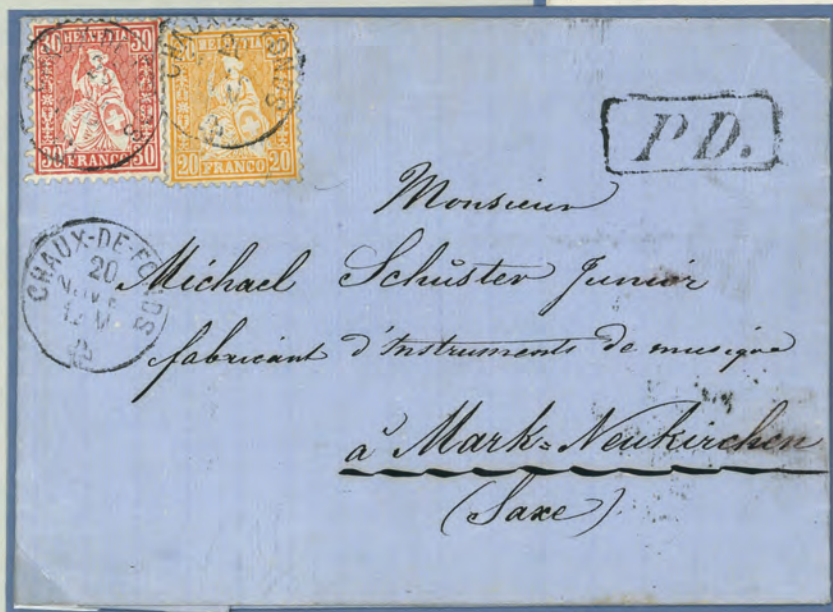 30 HELVETIA 30
30 FRANCO 30
HELVETIA
20 FRANCO 20
CHAUX-DE-FONDS
20
P D.
Monsieur
CHAUX-DE-FONDS
20
Michael Schüster Junior
fabricant d'Instruments de musique
à Mark=Neukirchen
(Saxe)